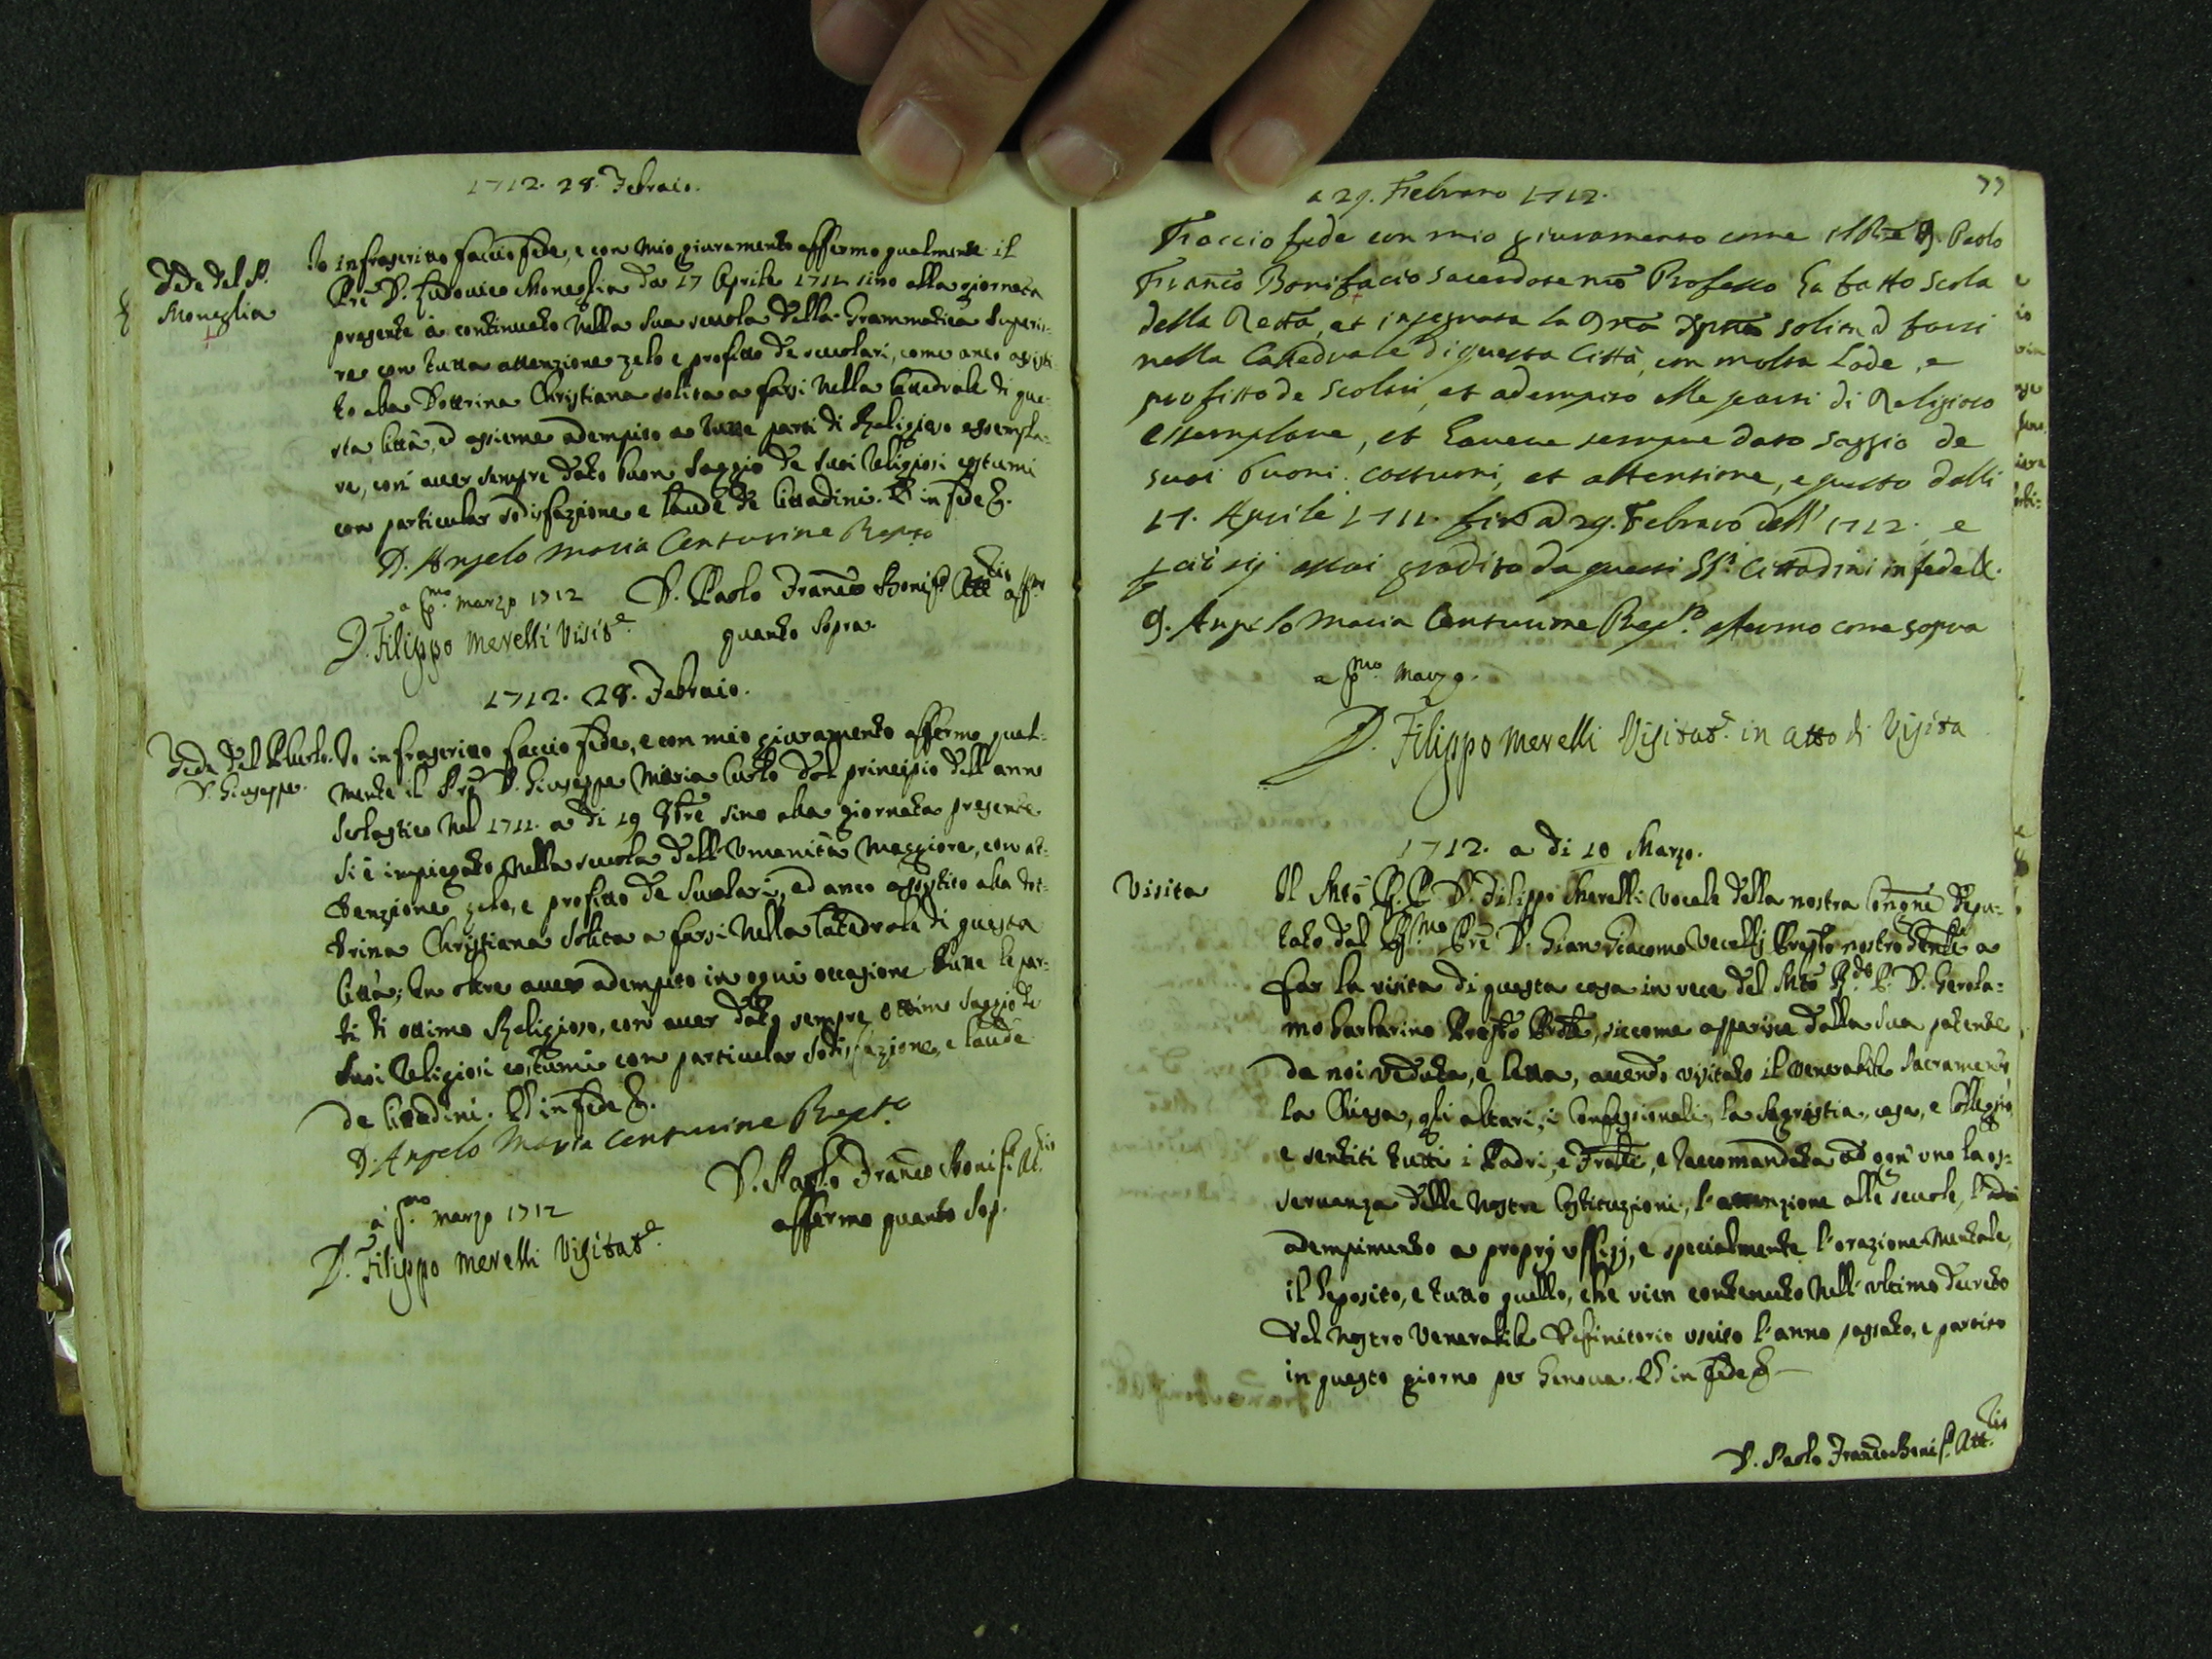 1712. 28. Febraio.
Fede del P.
Moneglia
Io infrascritto faccio fede, e con mio giuramento affermo qualmente il
Prē D. Ludovico Moneglia da 17 Aprile 1711 sino alla giornata
presente à continuato nella sua scuola della Grammatica Superio-
re con tutta attenzione zelo e profitto de scuolari, come anco assisti-
to alla Dottrina Christiana solita a farsi nella Cattedrale di que-
sta Città, ed assieme adempito a tutte parti di Religioso essempla-
re, con aver sempre dato buon saggio de suoi Religiosi costumi
con particular sodisfazione e laude de Cittadini. Et in fede &.
D. Angelo Maria Centurine Repto
a pmo marzo 1712
D. Paolo Franco Bonif. Attlis affmo
D. Filippo Merelli Visite
quanto sopra.
1712. 28. Febraio.
Fede del P. Curlo
D. Giuseppe.
Io infrascritto faccio fede, e con mio giuramento affermo qual-
mente il Prē D. Giuseppe Maria Curlo dal principio dell'anno
scolastico nel 1711. a di 19 8bre sino alla giornata presente
si è impiegato nella scuola dell'Umanità Maggiore, con at-
tenzione zelo, e profitto de Scuolari, ed anco assistito alla Dot-
trina Christiana solita a farsi nella Catedrale di questa
Città; In oltre aver adempito in ogni occasione tutte le par-
ti di ottimo Religioso, con aver dato sempre ottimo saggio de
suoi Religiosi costumi con particular sodisfazione, e laude
de Cittadini. Et in fede &.
D. Angelo Maria Centurine Repto
D. Paolo Franco Bonif. Att.lis
à pmo marzo 1712
affermo quanto sop.
D. Filippo Merelli Visitate.
77
a 29. Febraro 1712.
Faccio fede con mio giuramento come il Pre D. Paolo
Franco Bonifacio sacerdote nro Professo ha fatto scola
della Retta, et insegnata la Drna Xpna solita d farsi
nella Cattedrale di questa Città, con molta Lode, e
profitto de Scolari, et adempito alle parti di Religioso
essemplare, et havere sempre dato saggio de
suoi buoni costumi, et attentione, e questo dalli
17. Aprile 1711. fino a 29. Febraro dell' 1712. e
assai gradito da questi SSri Cittadini in fede &.
D. Angelo Maria Centurine Repto. affermo come sopra
a pmo Marzo.
D. Filippo Merelli Visitate. in atto di Visita
1712. a di 10 Marzo.
Visita
Il Mto R. P. D. Filippo Merelli Vocale della nostra Congne Depu-
tato dal Rmo Prē D. Gian Giacomo Vecelli Prepto nostro Gnle a
far la visita di questa casa in vece del Mto Rdo P. D. Gerola-
mo Barbarino Prepto Prle, siccome apparisce dalla sua patente
da noi veduta, e letta, avendo visitato il Venerabile Sacramento
la Chiesa, gli altari, i Confessionali, la Sagristia, casa, e Collegio
e sentiti tutti i Padri, e Fratelli, e raccomandata ad ogn'uno la os-
servanza delle nostre Costituzioni, l'attenzione alle scuole, l'
adempimento a proprj uffizj, e specialmente l'orazione Mentale,
il deposito, e tutto quello, che vien contenuto nell'ultimo decreto
del nostro Venerabile Definitorio uscito l'anno passato, e partito
in questo giorno per Genova. Et in fede &
D. Paolo Franco Bonif. Att.lis